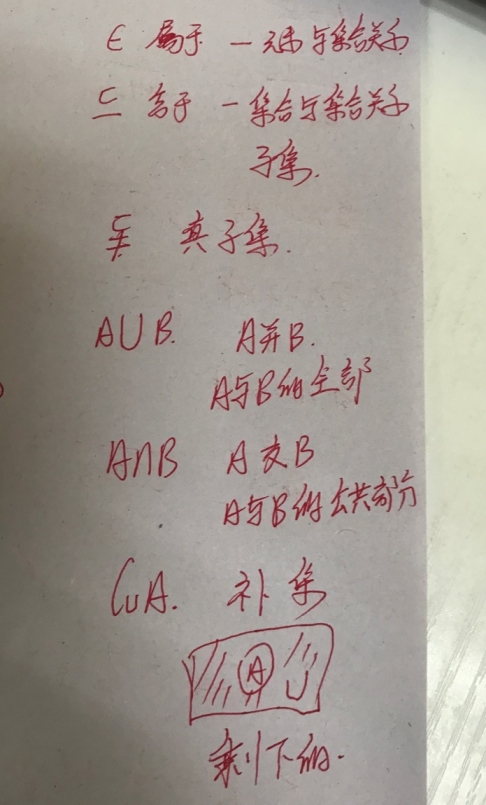 ∈ 属于 — 元素与集合关系
⊆ 含于 — 集合与集合关系
子集.
⊊ 真子集.
A∪B. A并B.
A与B的全部
A∩B A交B
A与B的公共部分
∁uA. 补集
A
U
剩下的.